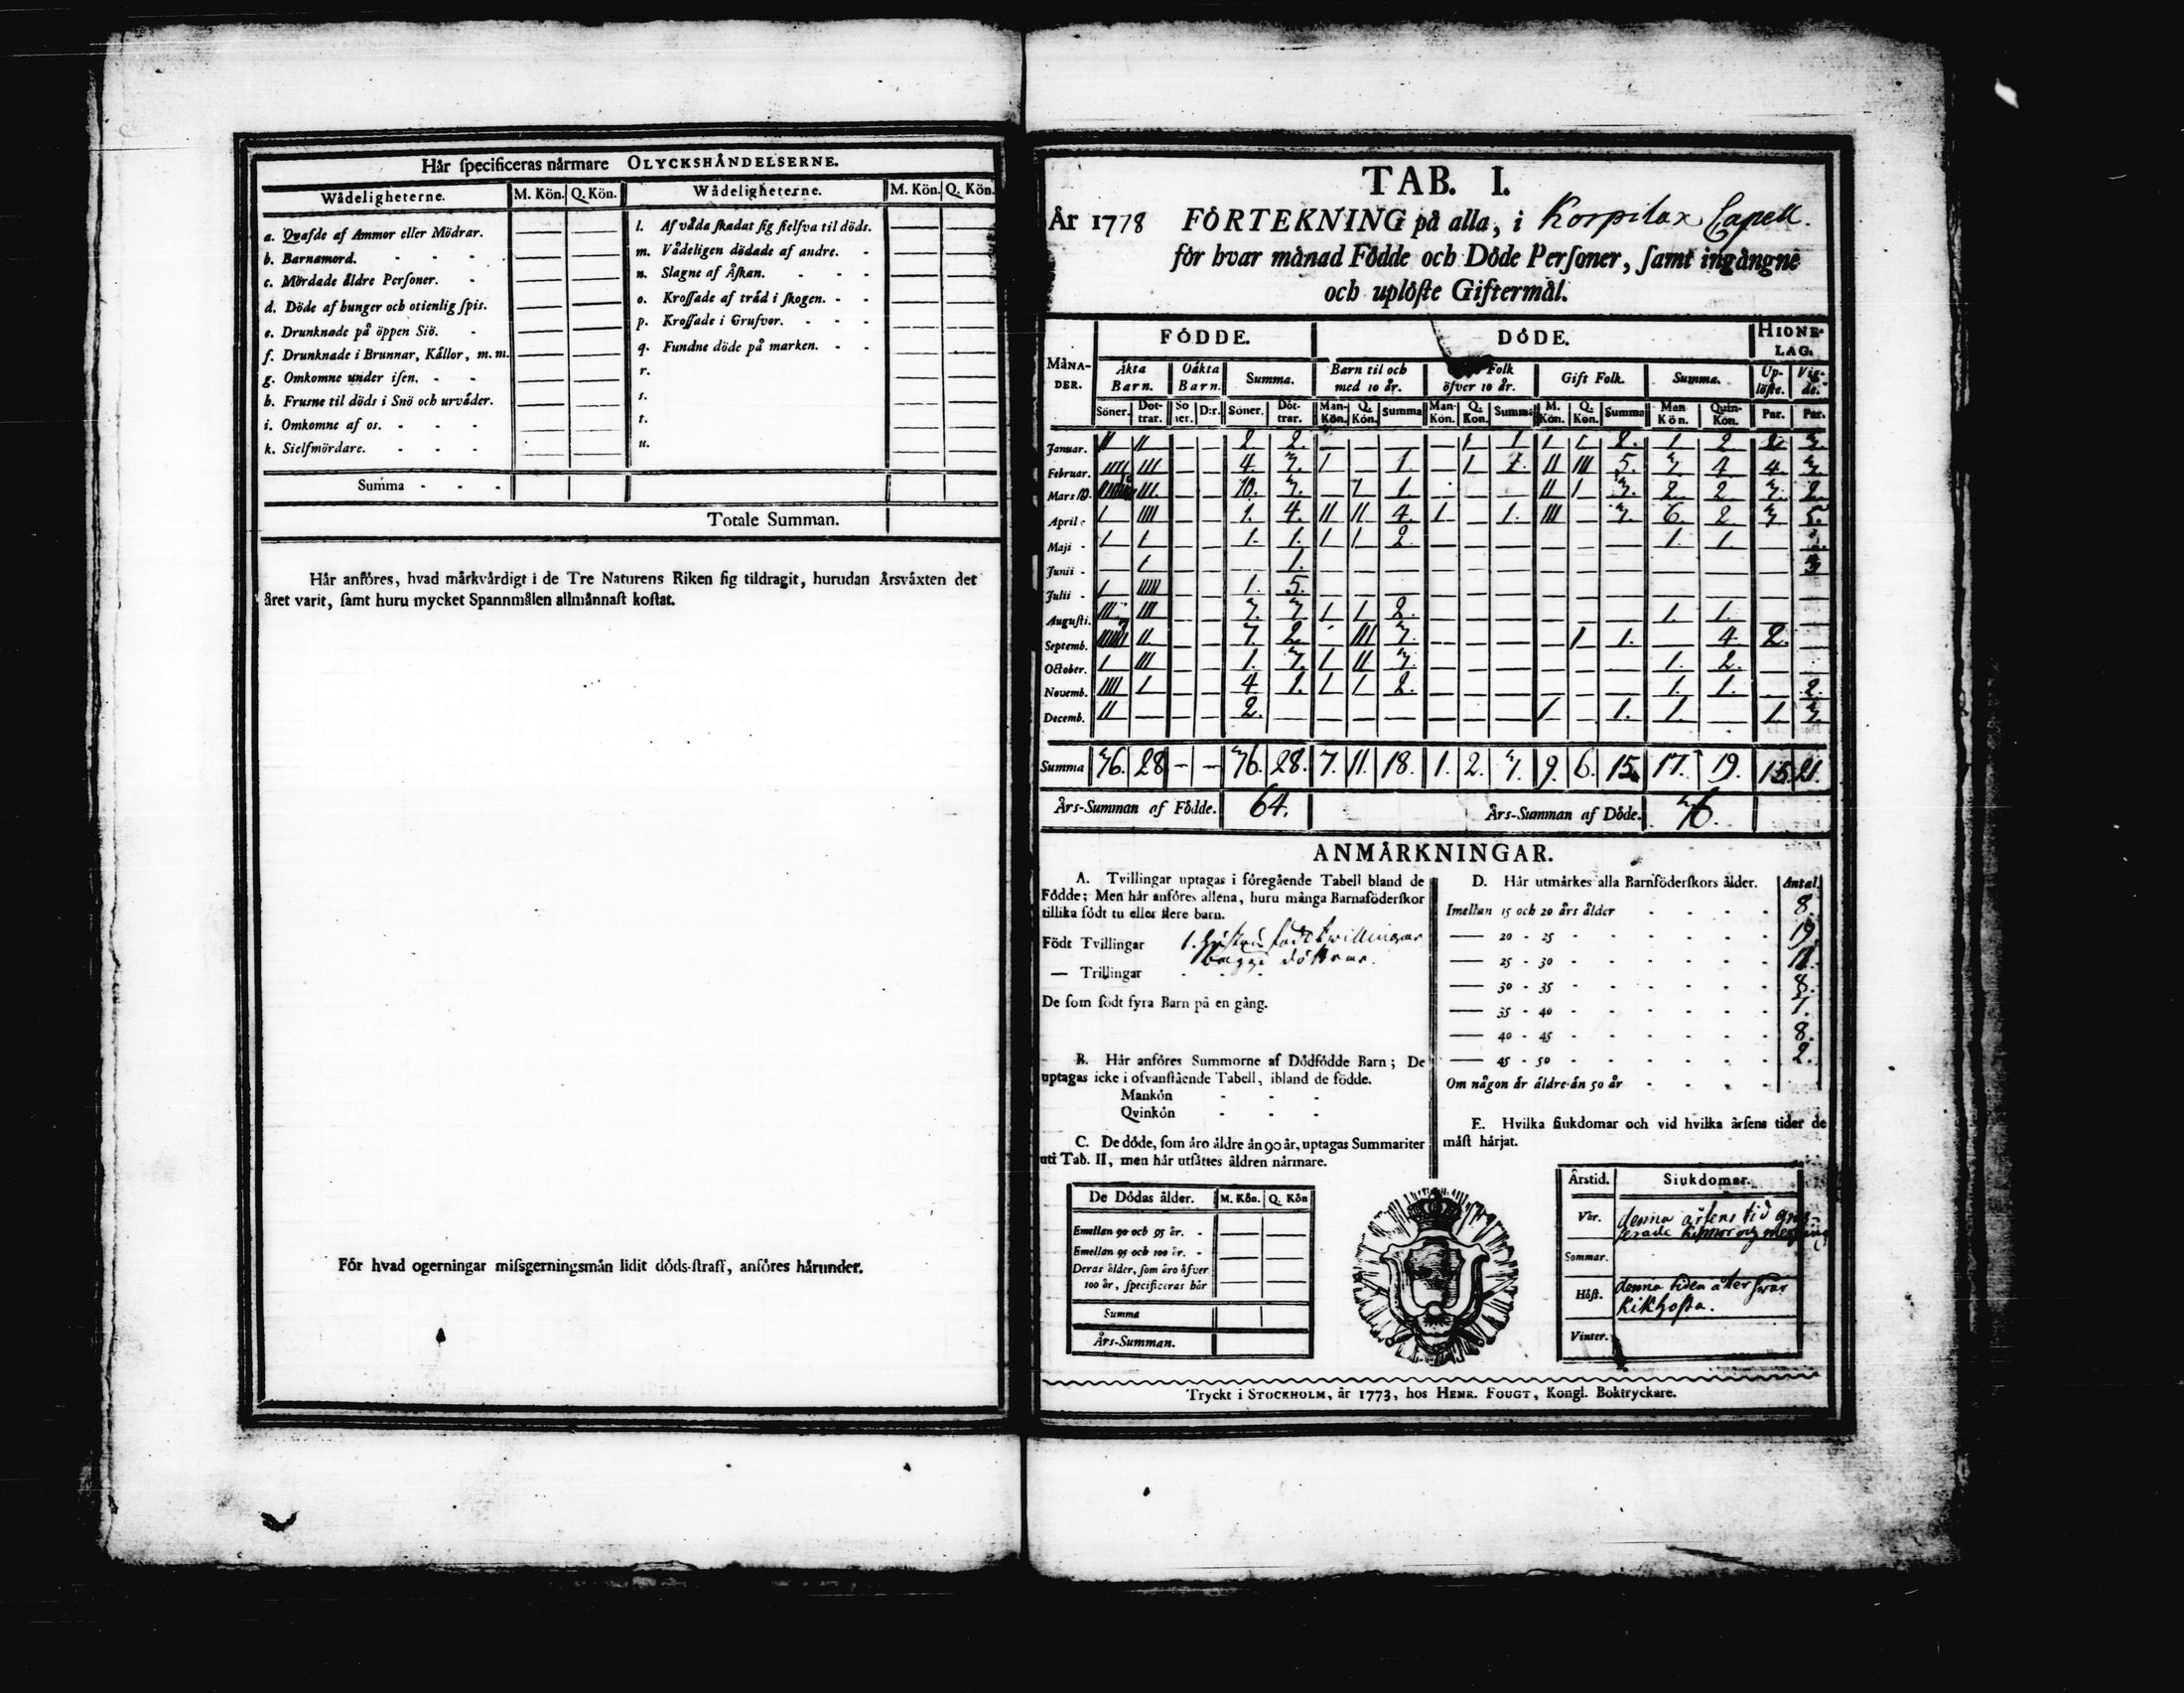 Hår specificeras nårmare OLYCKSHÅNDELSERNE.
Wådeligheterne. M. Kön. Q. Kön. Wådeligheterne. M. Kön. Q. Kön.
a. Qvafde af Ammor eller Mödrar. — — l. Af våda skadat sig sielfva til döds. — —
b. Barnamord. - - - — — m. Vådeligen dödade af andre. - — —
c. Mördade åldre Personer. - — — n. Slagne af Åskan. - - - — —
d. Döde af hunger och otienlig spis. — — o. Krossade af tråd i skogen. - - — —
e. Drunknade på öppen Siö. - — — p. Krossade i Grufvor. - - - — —
f. Drunknade i Brunnar, Kållor, m. m. — — q. Fundne döde på marken. - - — —
g. Omkomne under isen. - - — — r. — —
h. Frusne til döds i Snö och urvåder. — — s. — —
i. Omkomne af os. - - - — — t. — —
k. Sielfmördare. - - - — — u. — —
Summa - - -
Totale Summan.
Hår anföres, hvad mårkvårdigt i de Tre Naturens Riken sig tildragit, hurudan Årsvåxten det
året varit, samt huru mycket Spannmålen allmånnast kostat.
För hvad ogerningar missgerningsmån lidit döds-straff, anföres hårunder.
TAB. I.
År 1778 FÖRTEKNING på alla, i Korpilax Capell.
för hvar månad Födde och Döde Personer, samt ingångne
och uplöste Giftermål.
MÅNA-DER. FÖDDE. DÖDE. HIONE-LAG.
Åkta Barn. Oåkta Barn. Summa. Barn til och med 10 år. Folk öfver 10 år. Gift Folk. Summa. Up-löste. Vig-de.
Söner. Dot-trar. Söner. D:r. Söner. Döt-trar. Man-Kön. Q. Kön. Summa Man-Kön. Q. Kön. Summa M. Kön. Q. Kön. Summa Man Kön. Quin-Kön. Par. Par.
Januar. II II — — 2 2. — — — — 1 1 1 1 2. 1 2 2 3.
Februar. IIII III — — 4. 3. 1 — 1. — 1 1. II III 5. 3. 4 4 3.
Mars 10. III. — — 10. 3. — 1 1. — II 1 3. 2 2 3. 2
April 1 IIII — — 1. 4. II II 4. 1 — 1. III — 3. 6. 2 3 5.
Maji - 1 1 — — 1. 1. 1 1 2. — — — — — — 1. 1. —
Junii - — 1 — — — 1. — — — — — — — — — — — — 3
Julii - 1 IIIII — — 1. 5. — — — — — — — — — — — — —
Augusti. III III — — 3. 3 1 1 2. — — — — — — 1. 1. — —
Septemb. 7 II — — 7. 2 III 3. — — — — 1 1. — 4 2. —
October. 1 III — — 1. 3. 1 II 3. — — — — — — 1. 2. —
Novemb. IIII 1 — — 4 1. 1 1 2. — — — — — — 1. 1. — 2.
Decemb. II — — — 2. — — — — — — — 1 — 1. 1. — 1. 3.
Summa 36. 28 — — 36. 28. 7. 11. 18. 1. 2. 3. 9. 6. 15. 17. 19. 15. 21.
Års-Summan af Födde. 64. Års-Summan af Döde. 36.
ANMÅRKNINGAR.
A. Tvillingar uptagas i föregående Tabell bland de
Födde; Men hår anföres allena, huru många Barnaföderskor
tillika födt tu eller flere barn.
Födt Tvillingar 1. hustru födt twillingar
bägge döttrar.
— Trillingar - - -
De som födt fyra Barn på en gång.
B. Hår anföres Summorne af Dödfödde Barn; De
uptagas icke i ofvanstående Tabell, ibland de födde.
Mankön - - -
Qvinkön - - -
C. De döde, som åro åldre ån 90 år, uptagas Summariter
uti Tab. II, men hår utsåttes åldren nårmare.
De Dödas ålder. M. Kön. Q. Kön
Emellan 90 och 95 år. - — —
Emellan 95 och 100 år. - — —
Deras ålder, som åro öfver
100 år, specificeras hår — —
Summa
Års-Summan.
D. Hår utmårkes alla Barnföderskors ålder. Antal.
Imellan 15 och 20 års ålder - - - - 8.
— 20 - 25 - - - - - - 19
— 25 - 30 - - - - - - 11.
— 30 - 35 - - - - - - 8.
— 35 - 40 - - - - - - 7.
— 40 - 45 - - - - - - 8.
— 45 - 50 - - - - - - 2.
Om någon år åldre ån 50 år - - - -
E. Hvilka siukdomar och vid hvilka årsens tider de
måst hårjat.
Årstid. Siukdomar.
Vår. denna årsens tid gras-
serade koppor och
Sommar.
Höst. denna tiden åter swår
Kikhosta.
Vinter.
Tryckt i STOCKHOLM, år 1773, hos HENR. FOUGT, Kongl. Boktryckare.